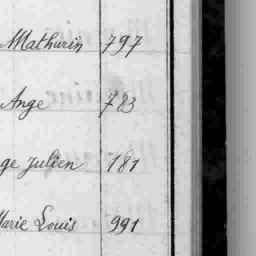 Mathurin 797
Ange 723
ge julien 181
Marie Louis 991